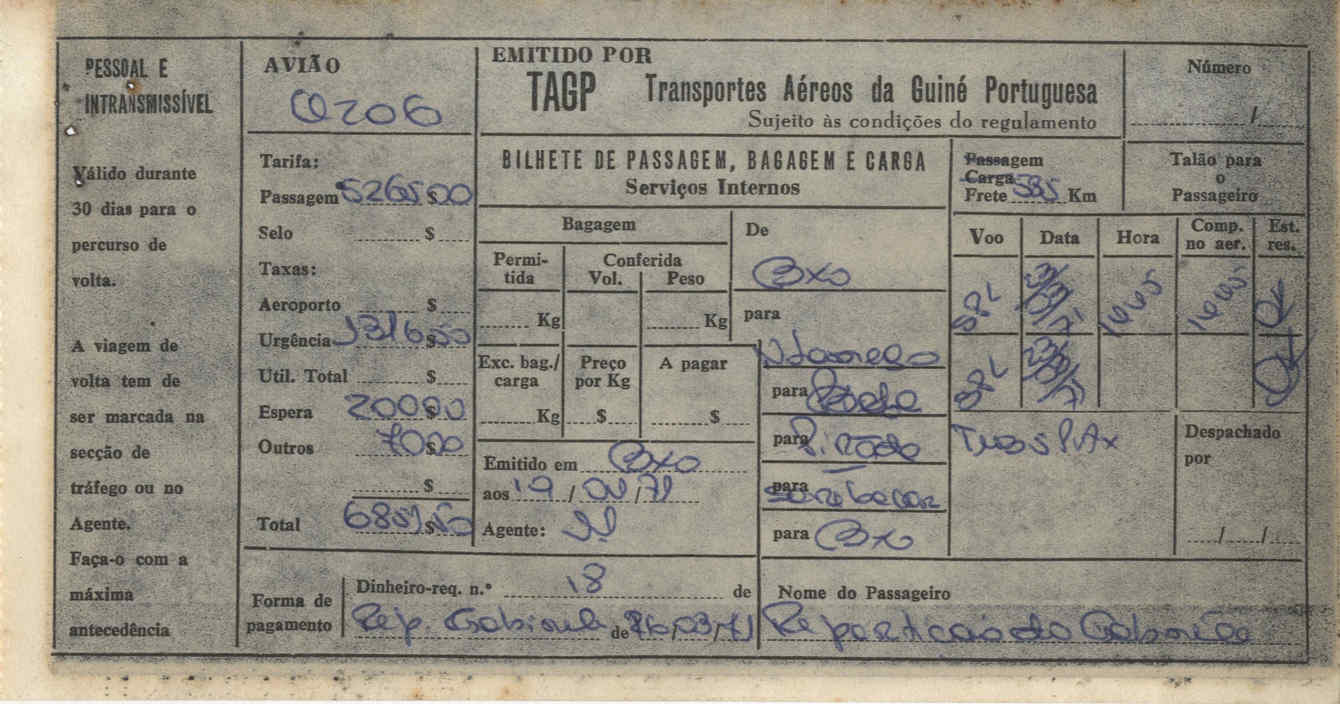 PESSOAL E
INTRANSMISSÍVEL
Válido durante
30 dias para o
percurso de
volta.
A viagem de
volta tem de
ser marcada na
secção de
tráfego ou no
Agente.
Faça-o com a
máxima
antecedência
AVIÃO
Tarifa:
Passagem 5265$00
Selo $
Taxas:
Aeroporto $
Urgência 1316$50
Util. Total $
Espera 200$00
Outros 70$00
$
Total 6851$50
EMITIDO POR
TAGP Transportes Aéreos da Guiné Portuguesa
Sujeito às condições do regulamento
Número
/
BILHETE DE PASSAGEM, BAGAGEM E CARGA
Serviços Internos
Passagem
Carga
Frete 585 Km
Talão para
o
Passageiro
Bagagem
Permi-
tida
Conferida
Vol. Peso
Kg Kg
Exc. bag./
carga
Preço
por Kg
A pagar
Kg $ $
Emitido em Bxo
aos 19 / /71
Agente:
De
Bxo
para
para
para Pirada
para
para Bxo
Voo Data Hora Comp.
no aer.
Est.
res.
SPL 1445 1445 OK
SPL OK
Tres PAX
Despachado
por
/ /
Forma de
pagamento
Dinheiro-req. n.º 18 de
Rep. Gabinete de 16/03/71
Nome do Passageiro
Repartição do Gabinete